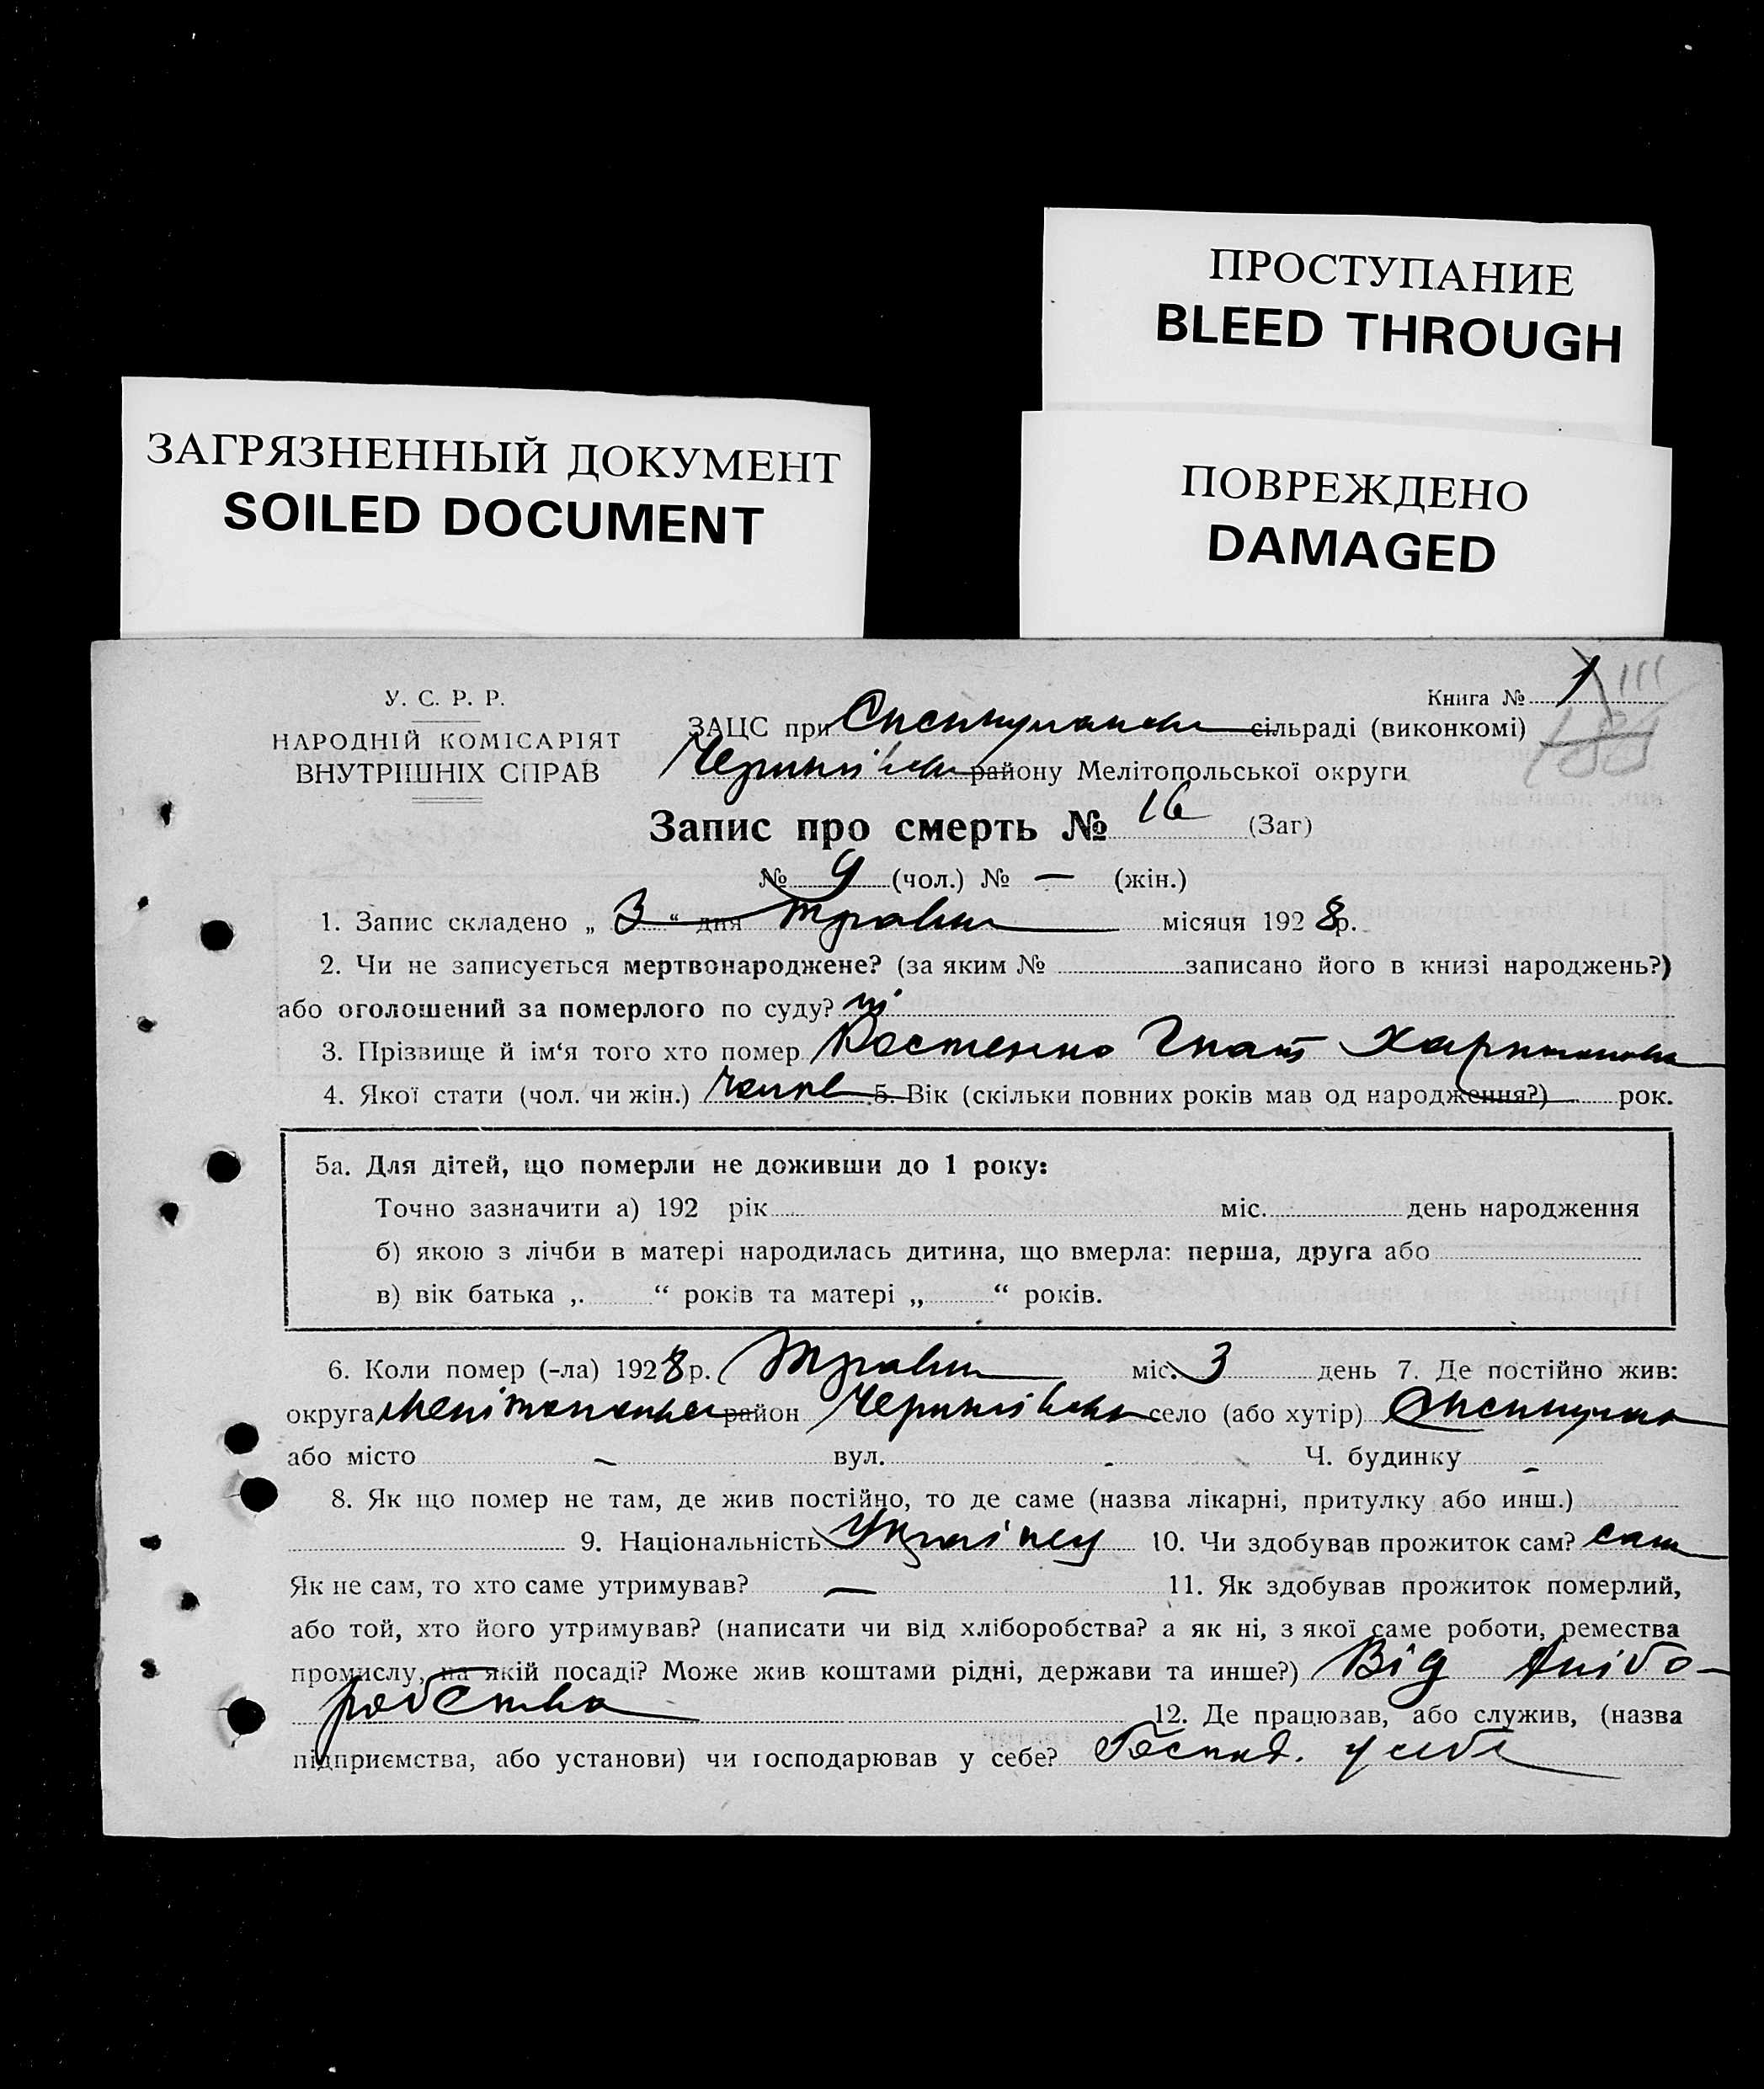 ПРОСТУПАНИЕ
BLEED THROUGH
ЗАГРЯЗНЕННЫЙ ДОКУМЕНТ
SOILED DOCUMENT
ПОВРЕЖДЕНО
DAMAGED
У. С. Р. Р.
НАРОДНІЙ КОМІСАРІЯТ
ВНУТРІШНІХ СПРАВ
Книга № 1
ЗАЦС при сільраді (виконкомі)
району Мелітопольської округи
Запис про смерть № 16 (Заг)
№ 9 (чол.) № — (жін.)
1. Запис складено „ 3 “ дня травня місяця 1928 р.
2. Чи не записується мертвонароджене? (за яким № записано його в книзі народжень?)
або оголошений за померлого по суду? ні
3. Прізвище й ім‘я того хто помер Костенко Гнат
4. Якої стати (чол. чи жін.) 5. Вік (скільки повних років мав од народження?) рок.
5а. Для дітей, що померли не доживши до 1 року:
Точно зазначити а) 192 рік міс. день народження
б) якою з лічби в матері народилась дитина, що вмерла: перша, друга або
в) вік батька „ “ років та матері „ “ років.
6. Коли помер (-ла) 1928 р. Травня міс. 3 день 7. Де постійно жив:
округа район село (або хутір)
або місто – вул. - Ч. будинку -
8. Як що помер не там, де жив постійно, то де саме (назва лікарні, притулку або инш.)
9. Національність Українец 10. Чи здобував прожиток сам? сам
Як не сам, то хто саме утримував? — 11. Як здобував прожиток померлий,
або той, хто його утримував? (написати чи від хліборобства? а як ні, з якої саме роботи, ремества
промислу, на якій посаді? Може жив коштами рідні, держави та инше?) Від хлібо-
робства 12. Де працював, або служив, (назва
підприємства, або установи) чи господарював у себе? Господ. у себе